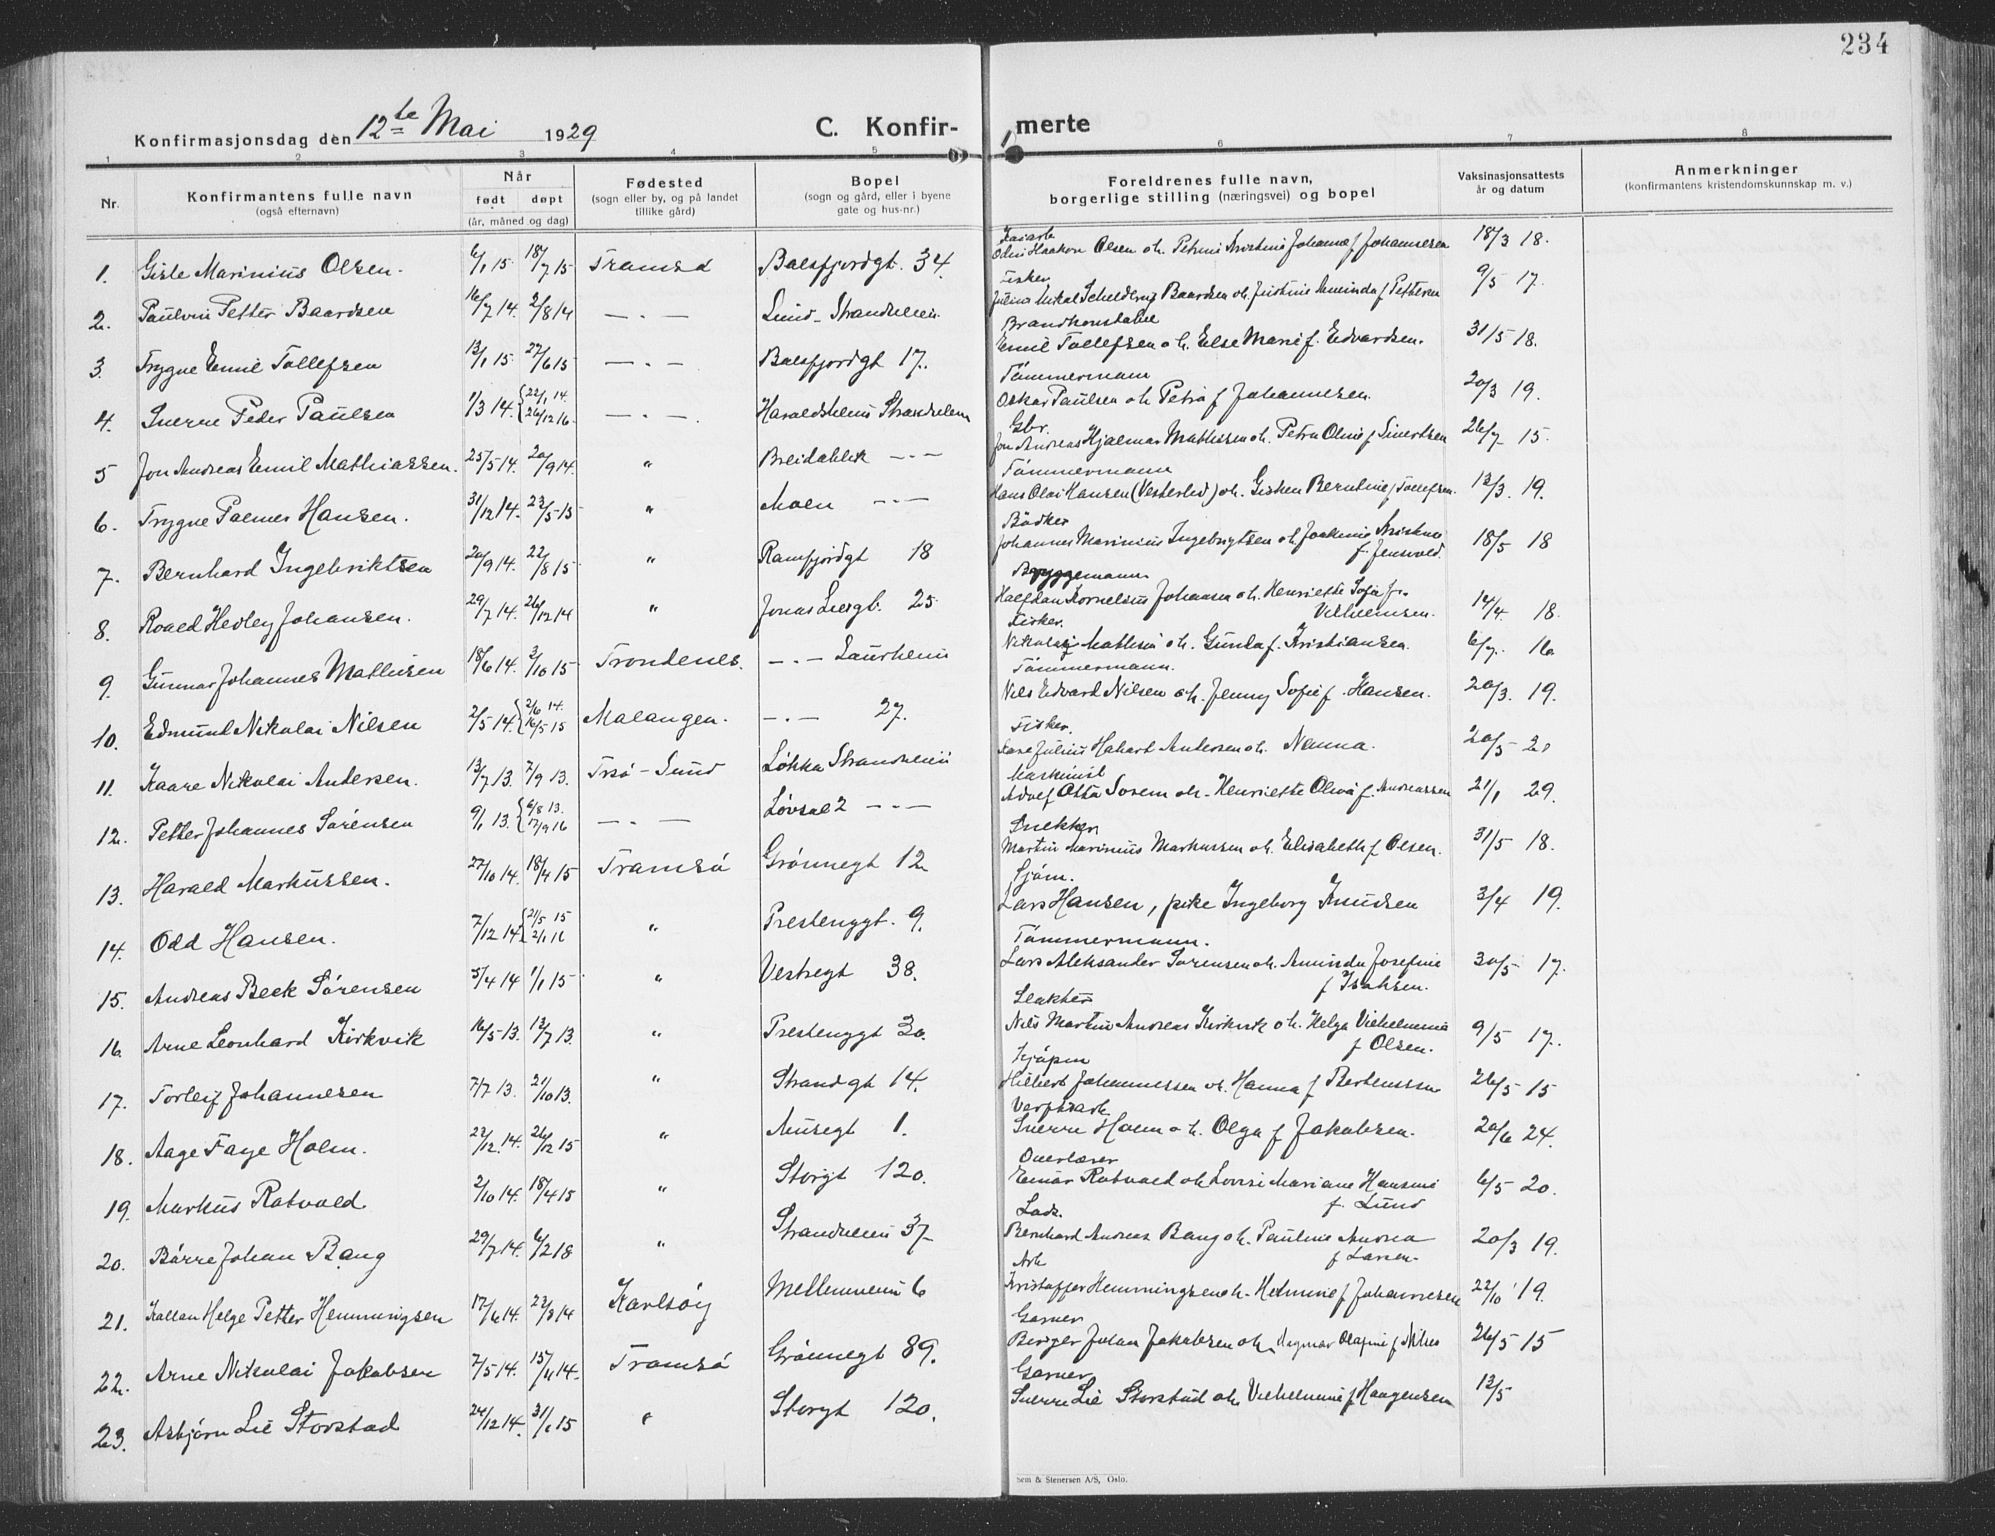 234
Konfirmasjonsdag den 12te Mai 1929
C. Konfir- merte
1 2 3 4 5 6 7 8
Nr.
Konfirmantens fulle navn
(også efternavn)
Når
født døpt
(år, måned og dag)
Fødested
(sogn eller by, og på landet
tillike gård)
Bopel
(sogn og gård, eller i byene
gate og hus-nr.)
Foreldrenes fulle navn,
borgerlige stilling (næringsvei) og bopel
Vaksinasjonsattests
år og datum
Anmerkninger
(konfirmantens kristendomskunnskap m. v.)
Kaiarb
1. Gisle Marinius Olsen. 6/1 15 18/7 15 Tromsø Balsfjordgt. 34. Odin Haakon Olsen o h. Petrine Kristine Johanne f Johannesen 18/3 18.
Fisker
2. Paulvin Petter Baardsen 16/7 14. 2/8 14 — . — Lund - Strandveien Mikal Schelderup Baardsen o h. Justine Aminda f Pettersen 9/5 17.
Brandkonstabel
3. Trygve Emil Tollefsen 13/1 15 27/6 15 — . — Balsfjordgt 17. Emil Tollefsen o h. Else Marie f. Edvardsen. 31/5 18.
Tømmermann
4. Sverre Peder Paulsen 1/3 14. {22/1 14. 26/12 16. — . — Haraldsheim Strandveien Oskar Paulsen o h Petra f Johannesen. 20/3 19.
Gbr.
5 Jon Andreas Emil Mathiassen. 25/5 14. 20/9 14. " Breidablik — . — Jon Andreas Hjalmar Mathissen o h. Petra Oline f Sivertsen 26/7 15.
Tømmermann
6. Trygve Palmer Hansen. 31/12 14. 23/5 15 " Moen — . — Hans Olai Hansen (Vesterlid) o h. Gisken Berntine f Tollefsen. 13/3. 19.
Bødker
7. Bernhard Ingebriktsen 20/9 14. 22/8 15 " Ramfjordgt 18 Johannes Marinius Ingebrigtsen o h Joakime Kristine
f. Jensvold. 18/5 18
Bryggemann
8. Roald Hedley Johansen. 29/7 14. 26/12 14 " Jonas Liesgt. 25 Halfdan Kornelius Johansen o h. Henriette Sofie f.
Vilhelmsen. 14/4. 18.
Fisker.
9. Gunnar Johannes Mathisen 18/6 14. 3/10 15 Trondenes. — . — Laurheim Nikolai Mathisen o h. Gunda f. Kristiansen. 6/7. 16.
Tømmermann.
10. Edmund Nikolai Nilsen 2/5 14. {2/6 14. 16/5 15 Malangen. — . — 27. Nils Edvard Nilsen o h. Jenny Sofie f. Hansen. 20/3. 19.
Fisker.
11. Kaare Nikolai Andersen. 13/7 13. 7/9 13. Trsø - Sund Løkka Strandveien Julius Andersen o h. Nanna. 20/5 21
Maskinist
12. Petter Johannes Sørensen 9/1 13. {6/8 13. 17/9 16 — . — Løvsal 2 — . — Adolf Otto Sørens o h. Henriette Oliva f. Andreassen 21/1 29.
Snekker
13. Harald Markussen. 27/10 14. 18/4 15 Tromsø Grønnegt 12 Martin Marinius Markussen o h. Elisabeth f Olsen. 31/5 18.
Sjøm.
14. Odd Hansen. 7/12 14 {21/5 15 2/1 16 " Prestenggt. 9. Lars Hansen, pike Ingeborg Knudsen 3/4 19.
Tømmermann.
15. Andreas Beck Sørensen 5/4 14 1/1 15 " Vestregt 38. Lars Aleksander Sørensen o h. Aminda Josefine
f Isaksen. 30/5 17.
Slakter
16. Arne Leonhard Kirkvik 16/5 13. 13/7 13. " Prestenggt 30. Nils Martin Andreas Kirkvik o h. Helga Vilhelmine
f Olsen. 9/5 17.
Kjøpm
17. Torleif Johannesen 7/7 13. 21/10 13. " Strandgt 14. Hilbert Johannessen o h. Hanna f Berthenssen 26/5 15
Verftsarb
18. Aage Faye Holm. 22/12. 14. 26/12 15 " Musegt 1. Sverre Holm o h. Olga f Jakobsen. 20/6 24.
Overlærer
19. Markus Rotvold. 2/10 14. 18/4 15 " Storgt 120. Einar Rotvold o h Lovise Mariane Hansine
f. Lund 6/5 20.
Lods.
20. Børre Johan Bang 29/7 14. 6/2 18 " Strandveien 37 Bernhard Andreas Bang o h. Pauline Andrea
f Larsen. 20/3 19.
Arb
21. Kallan Helge Petter Hemmingsen 17/6 14. 23/8 14 Karlsøy Mellemveien 6 Kristoffer Hemmingsen o h. Helmine f Johannesen 22/10 19.
Garver
22. Arne Nikolai Jakobsen 7/5 14. 15/11 14. Tromsø Grønnegt 89. Birger Johan Jakobsen o h. Dagmar Olafine f Nilses 26/5 15
Garver
23. Asbjørn Lie Storstad 24/12 14. 31/1 15 " Storgt 120. Sverre Lie Storstad o h Vilhelmine f Haagensen 13/5
Sem & Stenersen A/S, Oslo.